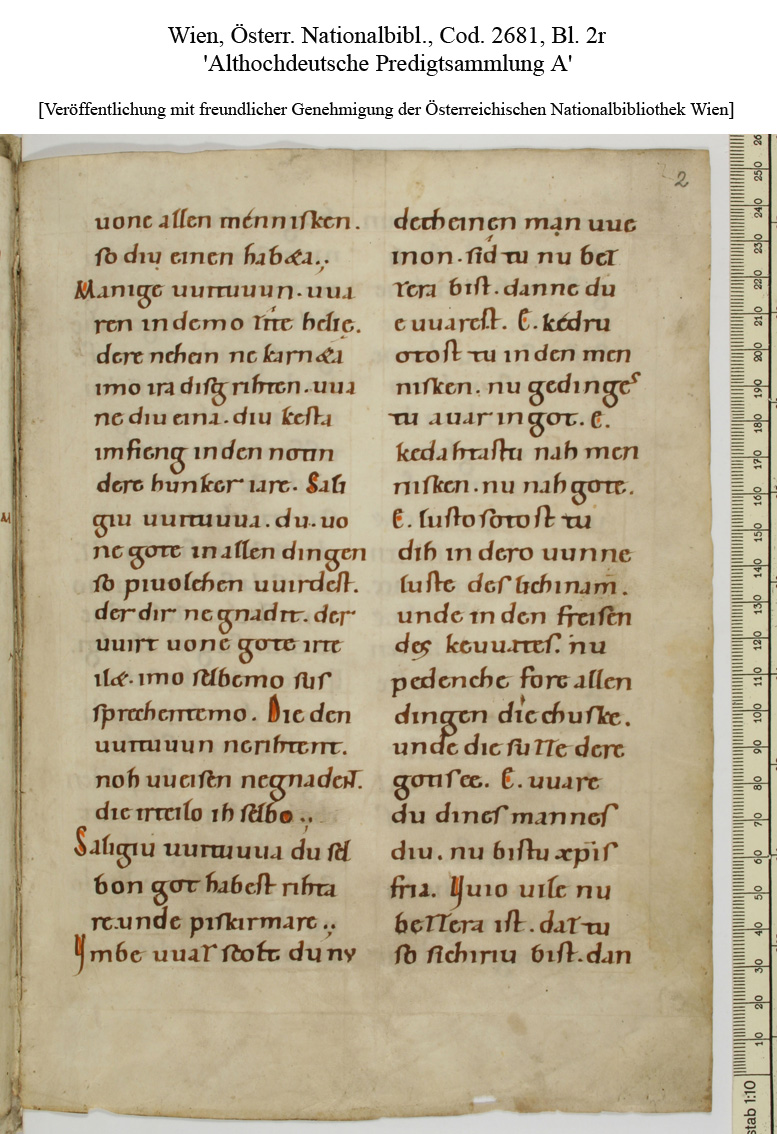 Wien, Österr. Nationalbibl., Cod. 2681, Bl. 2r
'Althochdeutsche Predigtsammlung A'
[Veröffentlichung mit freundlicher Genehmigung der Österreichischen Nationalbibliothek Wien]
2
uone allen ménnisken.
so diu einen habeta.,
Manige uuituuun. uua
ren in demo site heidę.
dere nehein ne karneta
imo ira disg rihten. uua
ne diu eina. diu kesta
imfieng in den noun
dere hunker iare. Sali
giu uuituuua. du. uo
ne gote in allen dingen
so piuolehen uuirdest.
der dir ne gnadit. der
uuirt uone gote irte
ilet. imo selbemo sus
sprechentemo. Die den
uuituuun nerihtent.
noh uueisen negnadent.
die irteilo ih selbo.,
Saligiu uuituuua du sel
bon got habest rihta
re. unde piskirmare.,
Ymbe uuaz scolt du nv
decheinen man uue
inon. sid tu nu bez
zera bist. danne du
e uuarest. E. kédru
otost tu in den men
nisken. nu gedinges
tu auar in got. E.
kedahtastu nah men
nisken. nu nah gote.
E. lustosotost tu
dih in dero uunne
luste des lichinam.
unde in den freisen
des keuuates. nu
pedenche fore allen
dingen die chuske.
unde die suzze dere
gotis ee. E. uuare
du dines mannes
diu. nu bistu xpis
fria. Yuio uile nu
bezzera ist. daz tu
so sichiriu bist. dan
260
250
240
230
220
210
200
190
180
170
160
150
140
130
120
110
100
90
80
70
60
50
40
30
20
10
stab 1:10